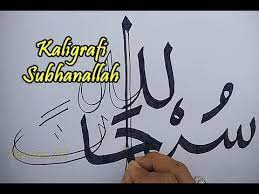 Kaligrafi
Subhanallah
سُبْحَانَ الله